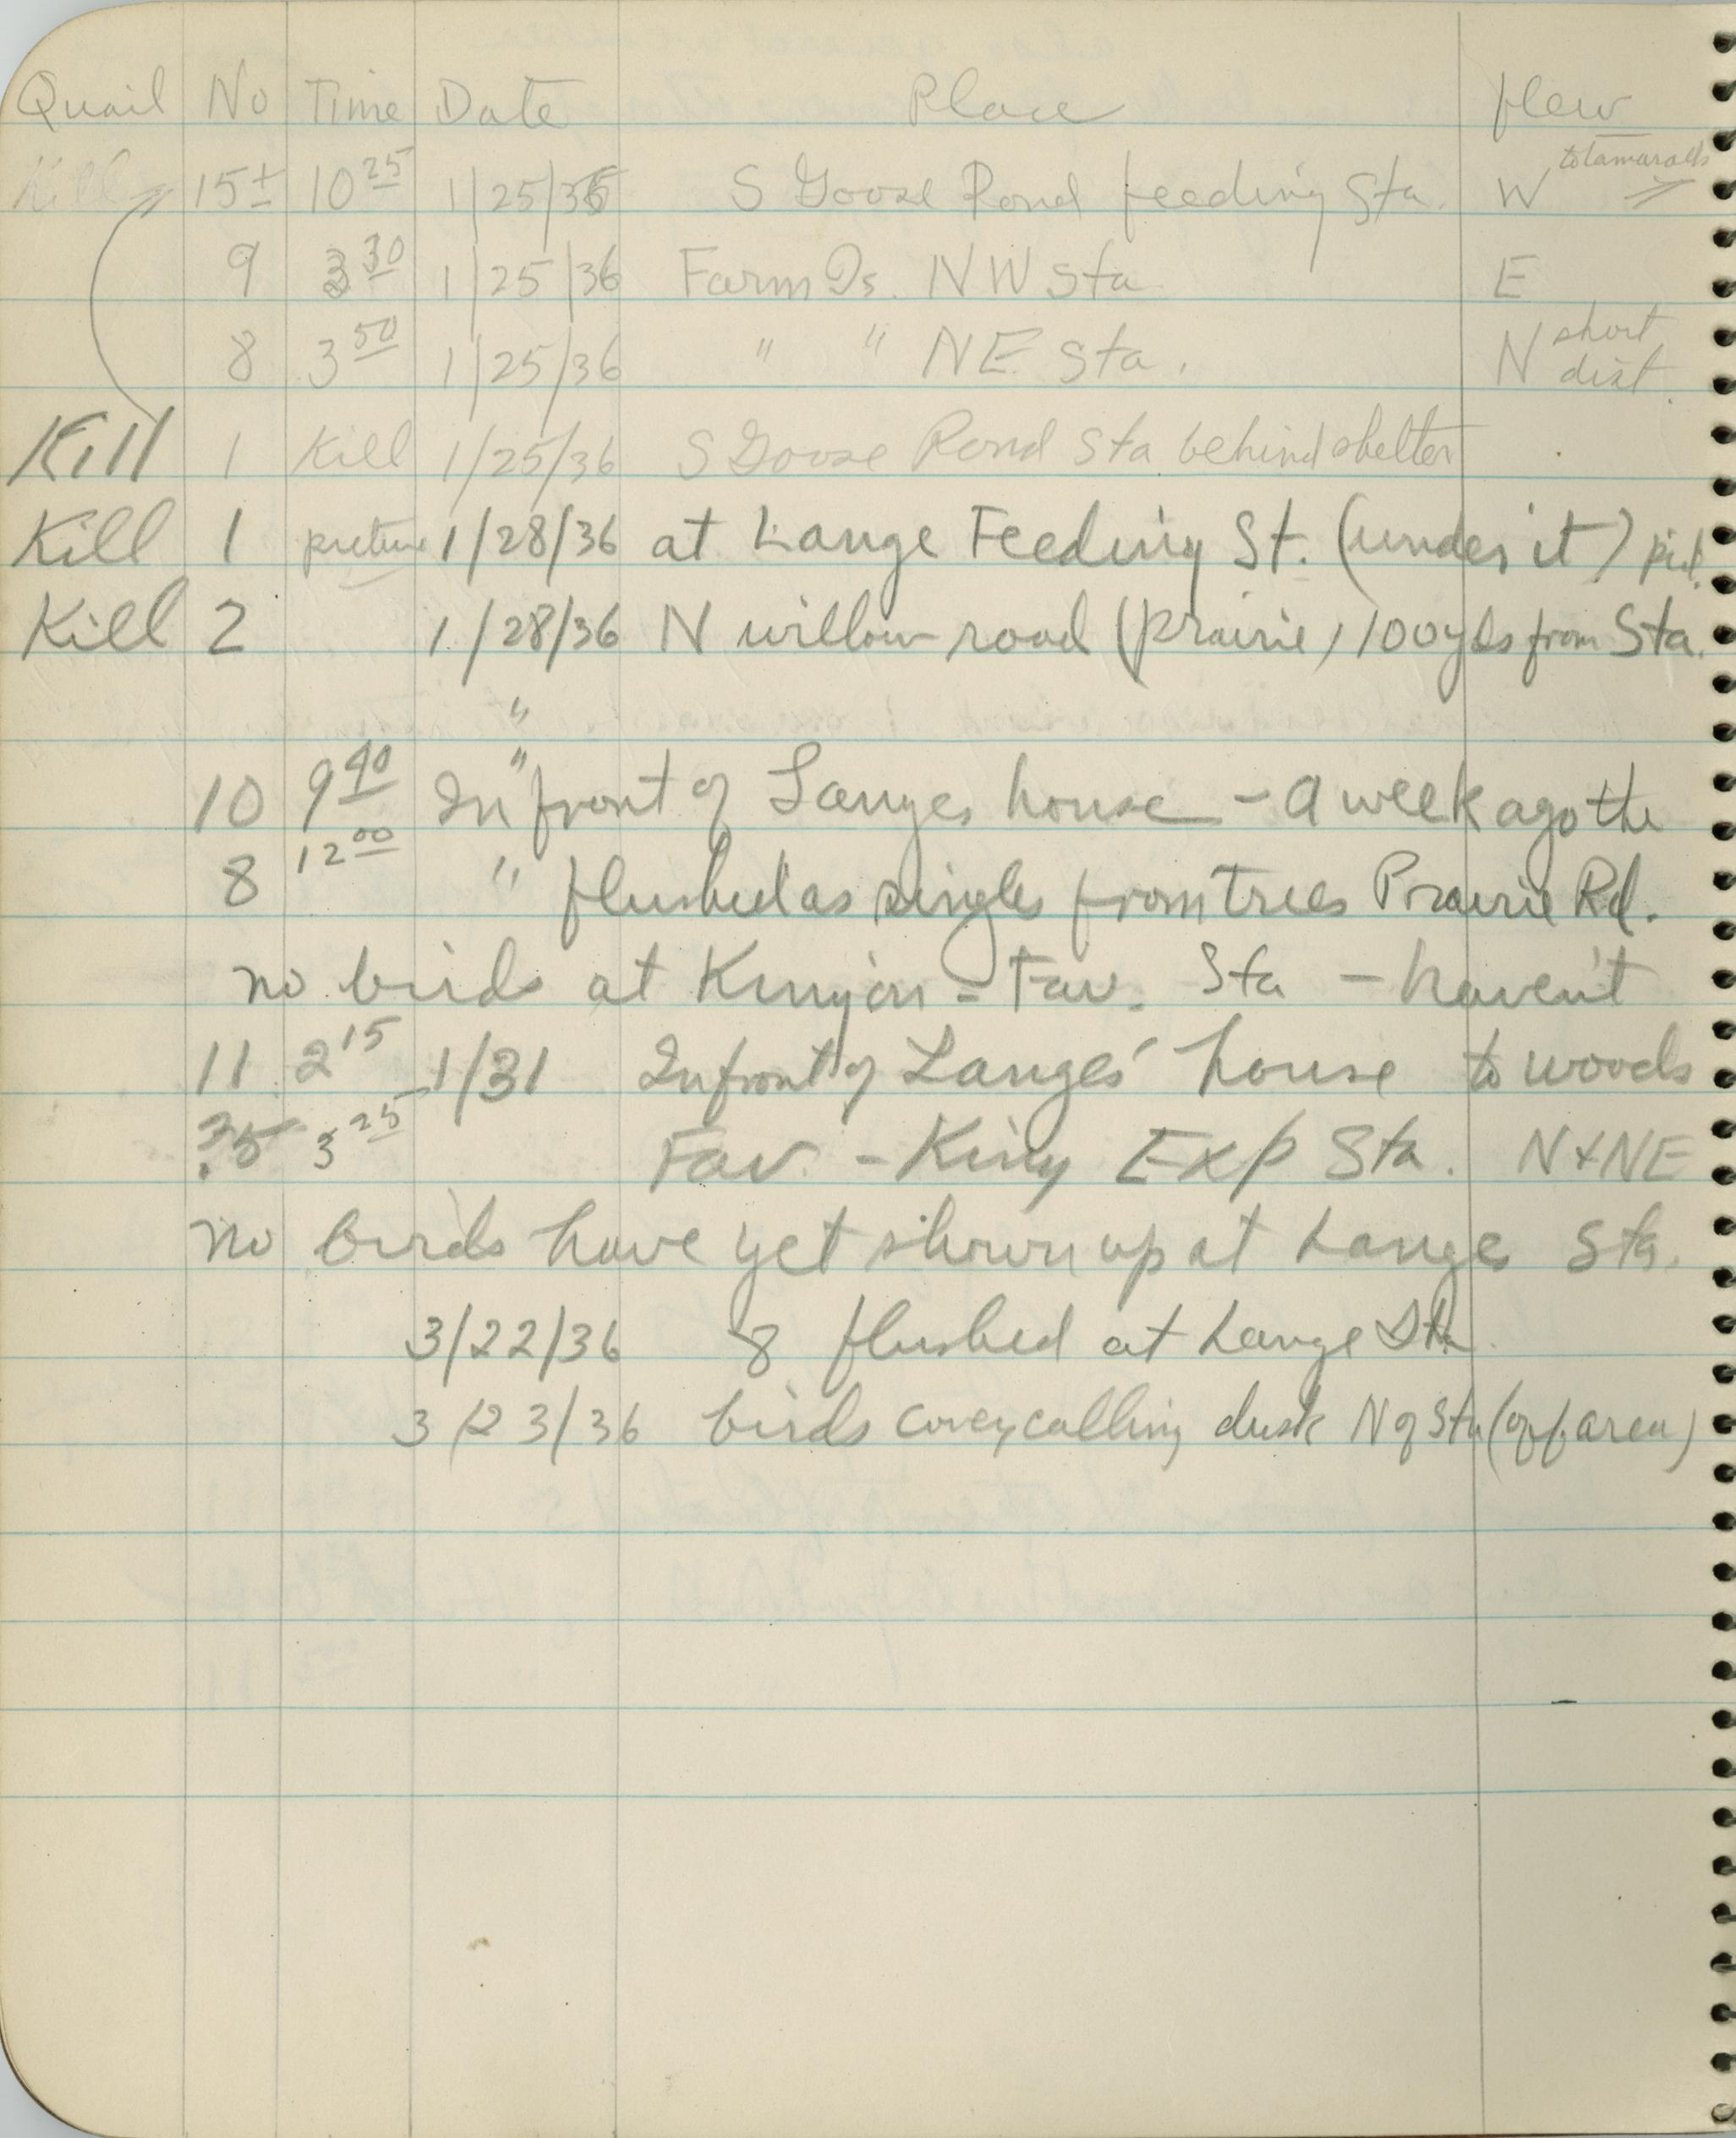 Quail No Time Date Place flew
Kill 15± 10 25 1/25/36 S Goose Pond feeding Sta. W to tamaracks
9 3 30 1/25/36 Farm Is. NW Sta E
8 3 50 1/25/36 " " NE Sta. N short dist.
Kill 1 Kill 1/25/36 S Goose Pond Sta behind shelter
Kill 1 picture 1/28/36 at Lange Feeding St. (under it)
Kill 2 1/28/36 N willow road (prairie) 100 yds from Sta.
"
10 9 40 " In front of Langes house - a week ago the
8 12 00 " flushed as singles from trees Prairie Rd.
no birds at Kinyon - Fav. Sta - haven't
11 2 15 1/31 In front of Langes' house to woods
?5 3 25 Fav. - Kiny Exp Sta. N + NE
no birds have yet shown up at Lange Sta.
3/22/36 8 flushed at Lange Sta.
3/23/36 birds covey calling dusk N of Sta (off area)